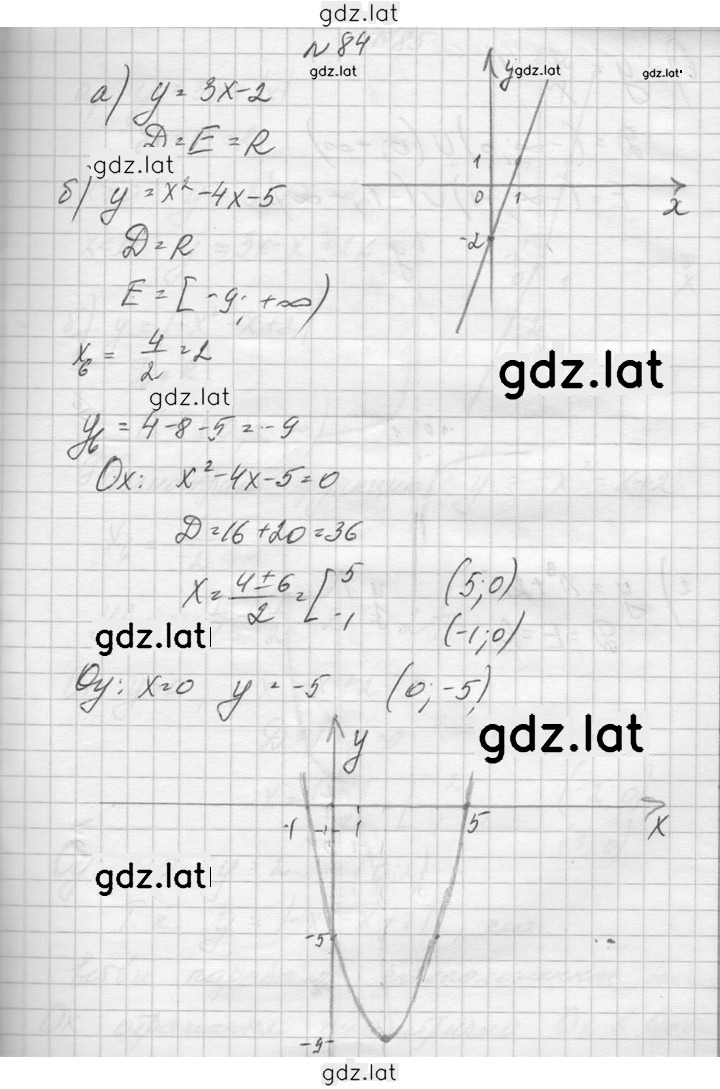 gdz.lat
№ 84
gdz.lat
gdz.lat
gdz.lat
а) y = 3x-2
y
D = E = R
gdz.lat
1
0 1 x
-2
б) y = x² - 4x - 5
D = R
E = [-9; +∞)
x_в = 4/2 = 2
gdz.lat
gdz.lat
y_в = 4 - 8 - 5 = -9
Ox: x² - 4x - 5 = 0
D = 16 + 20 = 36
x = (4 ± 6)/2 = [ 5 (5; 0)
-1 (-1; 0)
gdz.lat
Oy: x = 0 y = -5 (0; -5)
gdz.lat
y
-1 -1 1 5 x
gdz.lat
-5
-9
gdz.lat